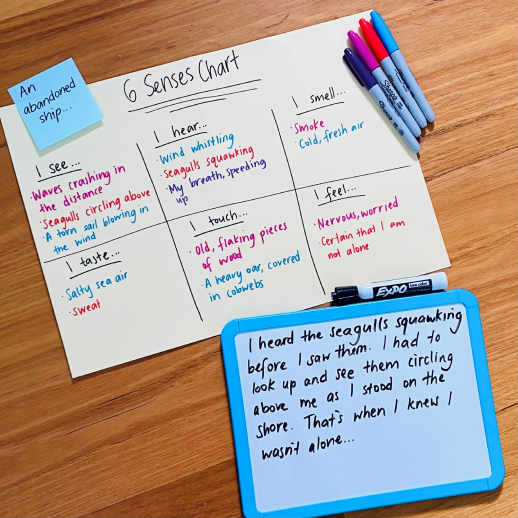 An
abandoned
ship...
6 Senses Chart
I see...
·Waves crashing in
the distance
·Seagulls circling above
·A torn sail blowing in
the wind
I hear...
·Wind whistling
·Seagulls squawking
·My breath, speeding
up
I smell...
·Smoke
·Cold, fresh air
I taste...
·Salty sea air
·Sweat
I touch...
·Old, flaking pieces
of wood
·A heavy oar, covered
in cobwebs
I feel...
·Nervous, worried
·Certain that I am
not alone
Sharpie
EXPO
I heard the seagulls squawking
before I saw them. I had to
look up and see them circling
above me as I stood on the
shore. That's when I knew I
wasn't alone...